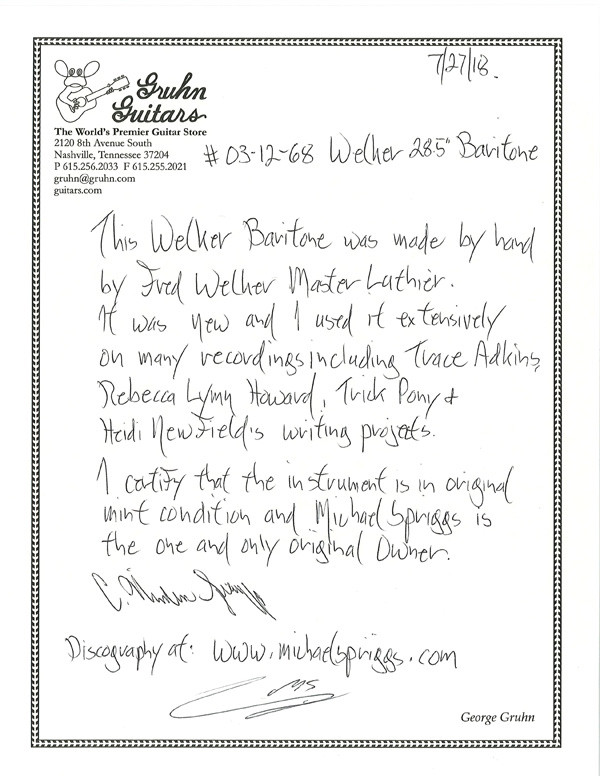 7/27/18.
Gruhn
Guitars
The World's Premier Guitar Store
2120 8th Avenue South
Nashville, Tennessee 37204
P 615.256.2033 F 615.255.2021
gruhn@gruhn.com
guitars.com
# 03-12-68 Welker 28.5" Baritone
This Welker Baritone was made by hand
by Fred Welker Master Luthier.
It was new and I used it extensively
on many recordings including Trace Adkins,
Rebecca Lynn Howard, Trick Pony &
Heidi Newfield's writing projects.
I certify that the instrument is in original
mint condition and Michael Spriggs is
the one and only original Owner.
C.
Discography at: www.michaelspriggs.com
MS
George Gruhn